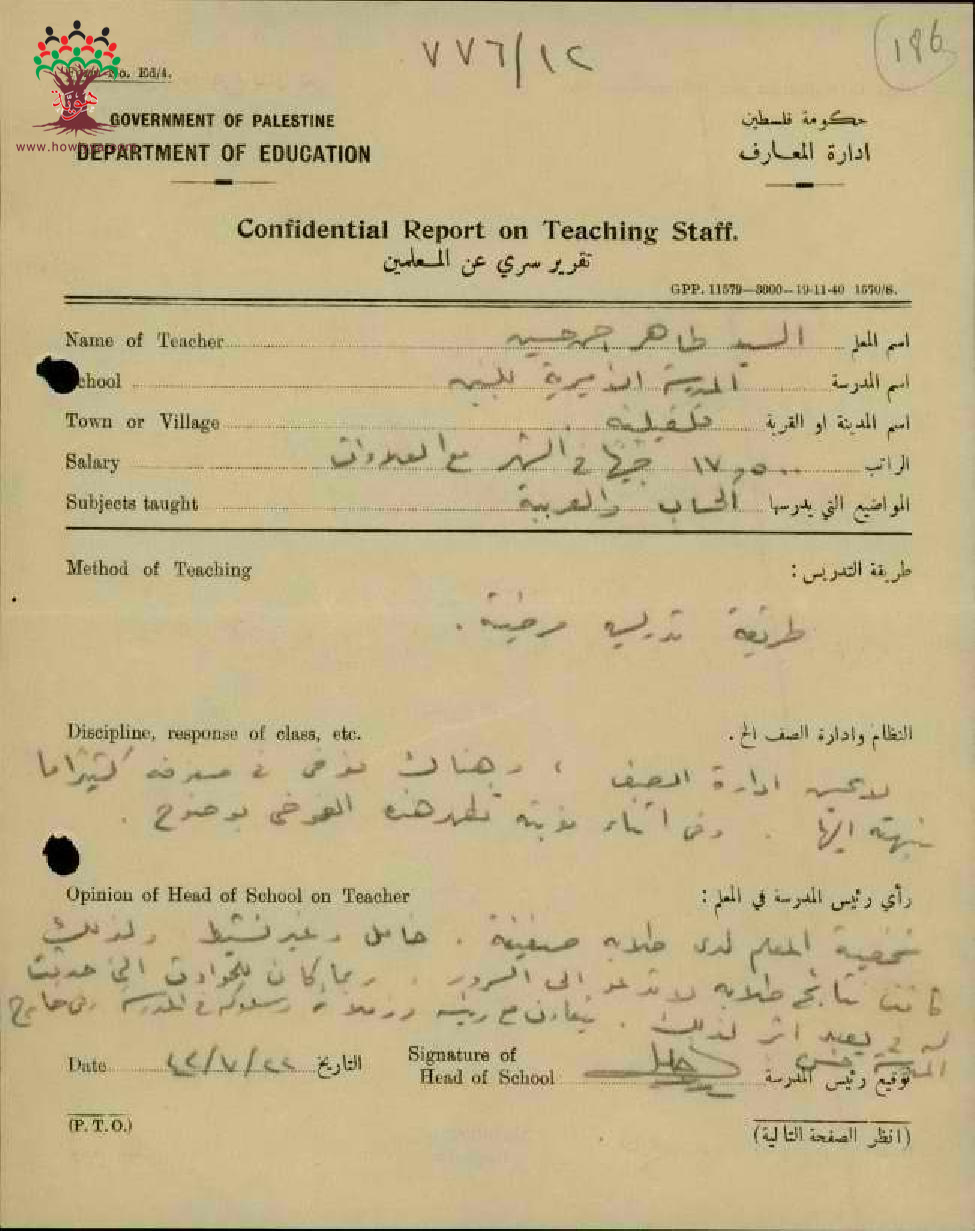 ١٢/٧٧٦
186
Form No. Ed/4.
هوية
www.howiyya.com
GOVERNMENT OF PALESTINE
حكومة فلسطين
DEPARTMENT OF EDUCATION
ادارة المعارف
Confidential Report on Teaching Staff.
تقرير سري عن المعلمين
GPP. 11579—3000—19-11-40 1570/S.
Name of Teacher السيد طاهر حسين اسم المعلم
School المدرسة الأميرية للبنين اسم المدرسة
Town or Village قلقيليه اسم المدينة او القرية
Salary ١٧,٥٠٠ جنيها في الشهر مع العلاوات الراتب
Subjects taught الحساب والعربية المواضيع التي يدرسها
Method of Teaching طريقة التدريس :
طريقة تدريسه مرضية .
Discipline, response of class, etc. النظام وادارة الصف الخ .
لا يحسن ادارة الصف ، وهناك فوضى في صفوفه كثيرا ما
نبهته اليها . وفي اثناء نوبته تظهر هذه الفوضى بوضوح .
Opinion of Head of School on Teacher رأي رئيس المدرسة في المعلم :
شخصية المعلم لدى طلابه ضعيفة . خامل وغير نشيط ولذلك
كانت نتائج طلابه لا تدعو الى السرور . ربما كان للحوادث التي حدثت
له في اثر لذلك . يتعاون مع رئيسه وزملائه وسلوكه في المدرسة وفي خارج
المدرسة حسن
Date ٤٢/٧/٢٢ التاريخ
Signature of
Head of School توقيع رئيس المدرسة
(P. T. O.)
(انظر الصفحة التالية)